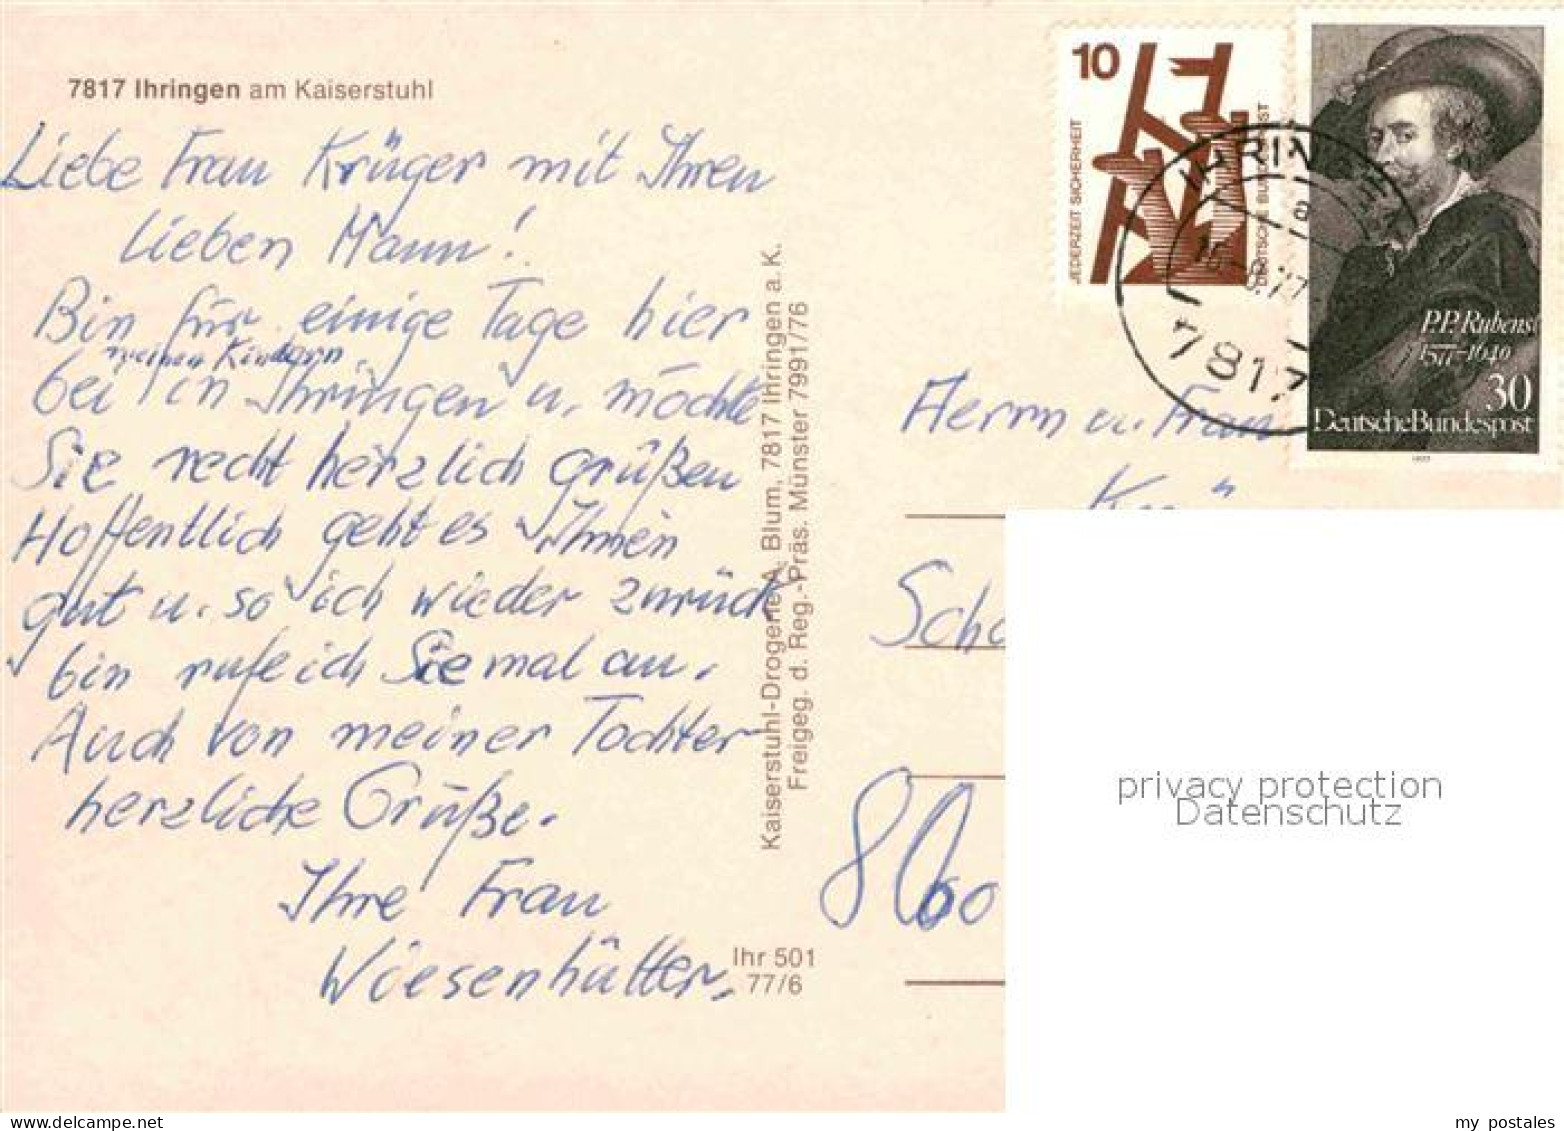 7817 Ihringen am Kaiserstuhl
Liebe Frau Krüger mit Ihren
lieben Mann!
Bin für einige Tage hier
meinen Kindern
bei in Ihringen u. möchte
Sie recht herzlich grüßen
Hoffentlich geht es Ihnen
gut u. so ich wieder zurück
bin rufe ich Sie mal an.
Auch von meiner Tochter
herzliche Grüße.
Ihre Frau
Wiesenhütter.
Kaiserstuhl-Drogerie A. Blum, 7817 Ihringen a. K.
Freigeg. d. Reg.-Präs. Münster 7991/76
Ihr 501
77/6
10
JEDERZEIT SICHERHEIT
DEUTSCHE BUNDESPOST
P.P. Rubens
1577-1640
30
Deutsche Bundespost
1977
7817
Herrn u. Frau
privacy protection
Datenschutz
my postales